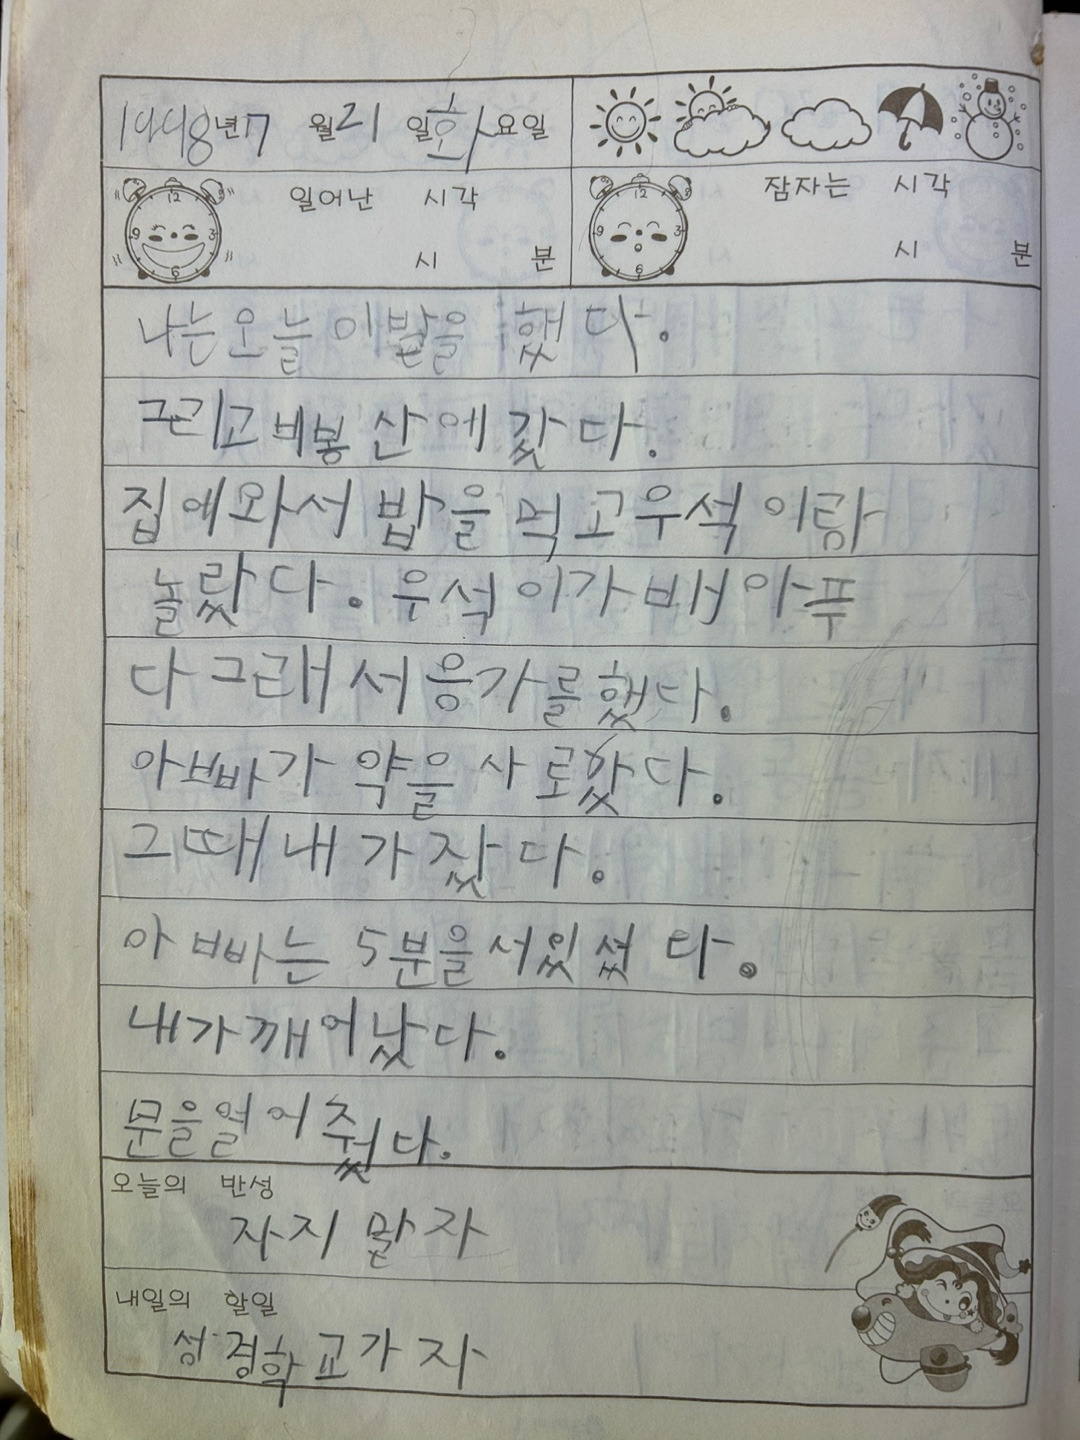 1998년 7월 21일 화요일
일어난 시각
시 분
잠자는 시각
시 분
나는 오늘 이발을 했다.
그리고 비봉산에 갔다.
집에와서 밥을 먹고 우석이랑
놀랐다. 우석이가 배아푸
다 그래서 응가를 했다.
아빠가 약을 사로갔다.
그때 내가 잤다.
아빠는 5분을 서있셨다.
내가 깨어났다.
문을 열어 줬다.
오늘의 반성
자지 말자
내일의 할일
성경학교가자